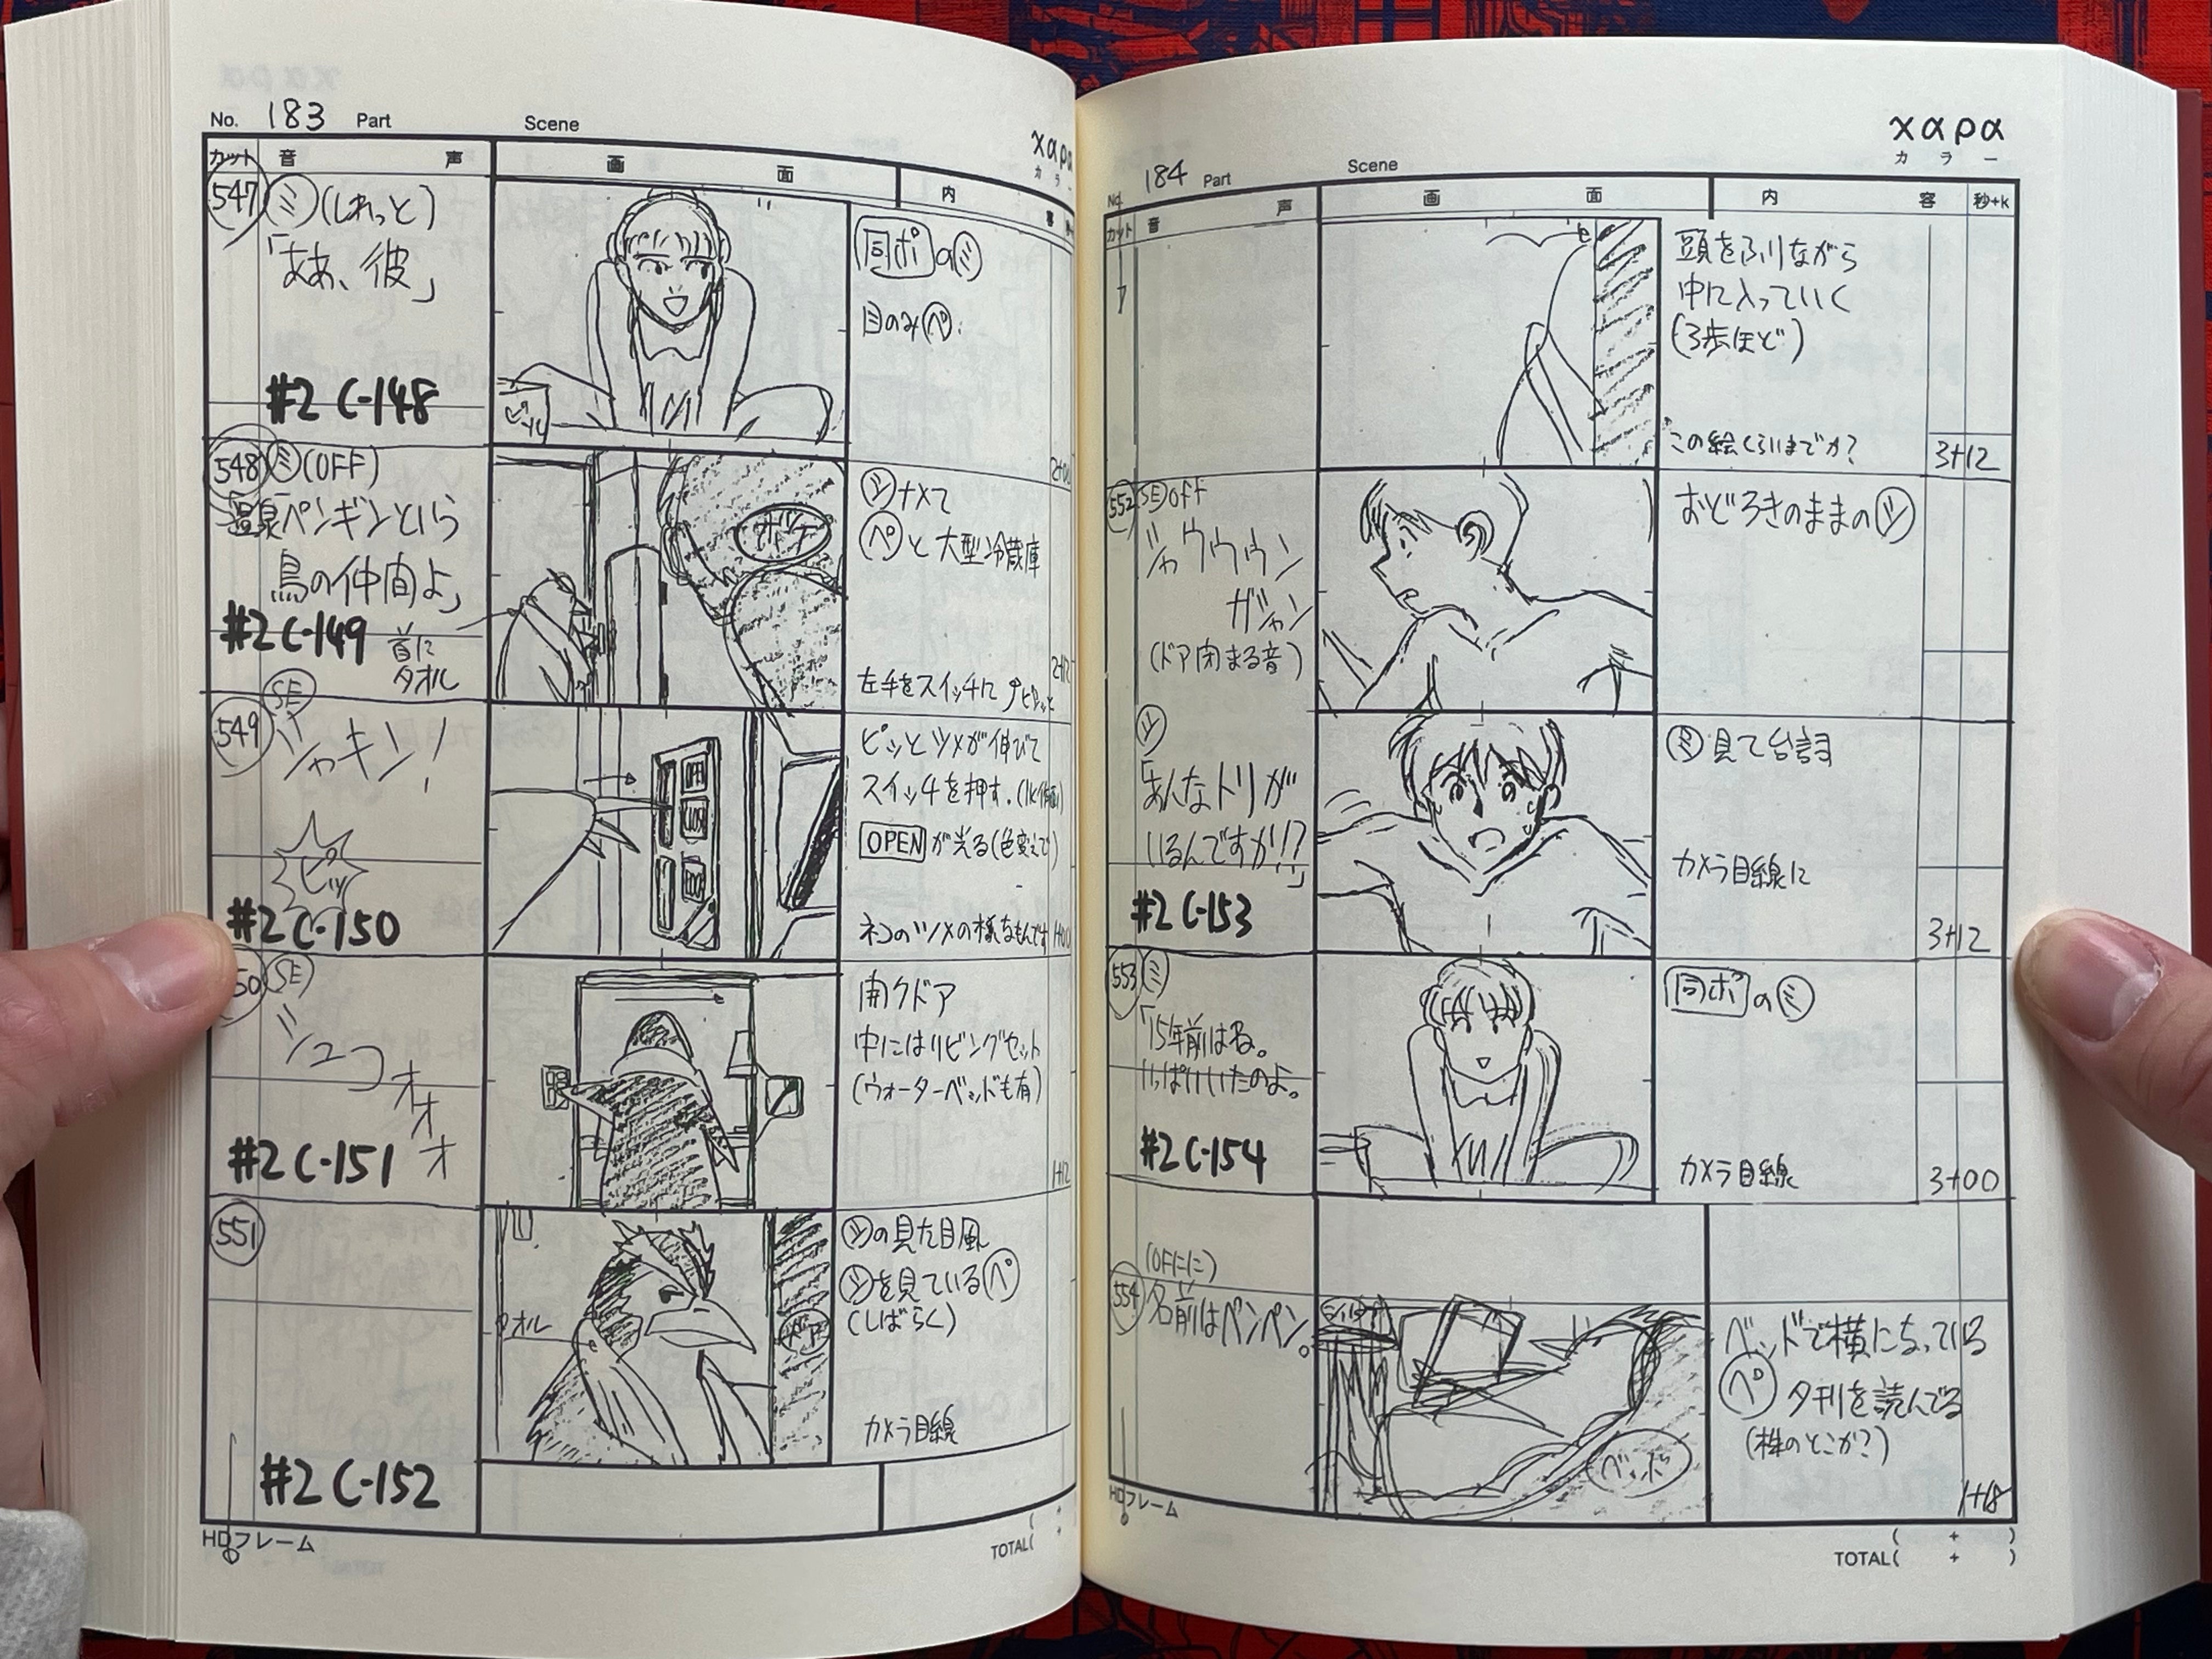 No. 183 Part Scene
χαρα
カラー
カット 音声 画面 内容
547 ミ(しれっと)
「ああ、彼」
#2 C-148
ビール
同ポのミ
目のみペ.
548 ミ(OFF)
「温泉ペンギンという
鳥の仲間よ」
#2 C-149
首に
タオル
ボケ
シナメて
ペと大型冷蔵庫
左手をスイッチに
549 SE
シャキン!
ピッ
#2 C-150
OPEN
ピッとツメが伸びて
スイッチを押す.
OPENが光る
ネコのツメの様なもんです
1+00
550 SE
シュコォォォォ
#2 C-151
開クドア
中にはリビングセット
(ウォーターベッドも有)
1+12
551
#2 C-152
タオル
ドア
シの見た目風
シを見ているペ
(しばらく)
カメラ目線
HDフレーム
TOTAL(
No. 184 Part Scene
χαρα
カラー
カット 音声 画面 内容 秒+k
頭をふりながら
中に入っていく
(3歩ほど)
この絵くらいまでか?
3+12
552 SE OFF
シャウウウン
ガシャン
(ドア閉まる音)
おどろきのままのシ
シ
「あんなトリが
いるんですか!!?」
#2 C-153
ミ見て台詞
カメラ目線に
3+12
553 ミ
「15年前はね。
いっぱいいたのよ。
#2 C-154
同ポのミ
カメラ目線
3+00
(OFFに)
554 名前はペンペン。
ベッドで横になっている
ペ 夕刊を読んでる
(株のとこか?)
1+18
HDフレーム
( + )
TOTAL( + )